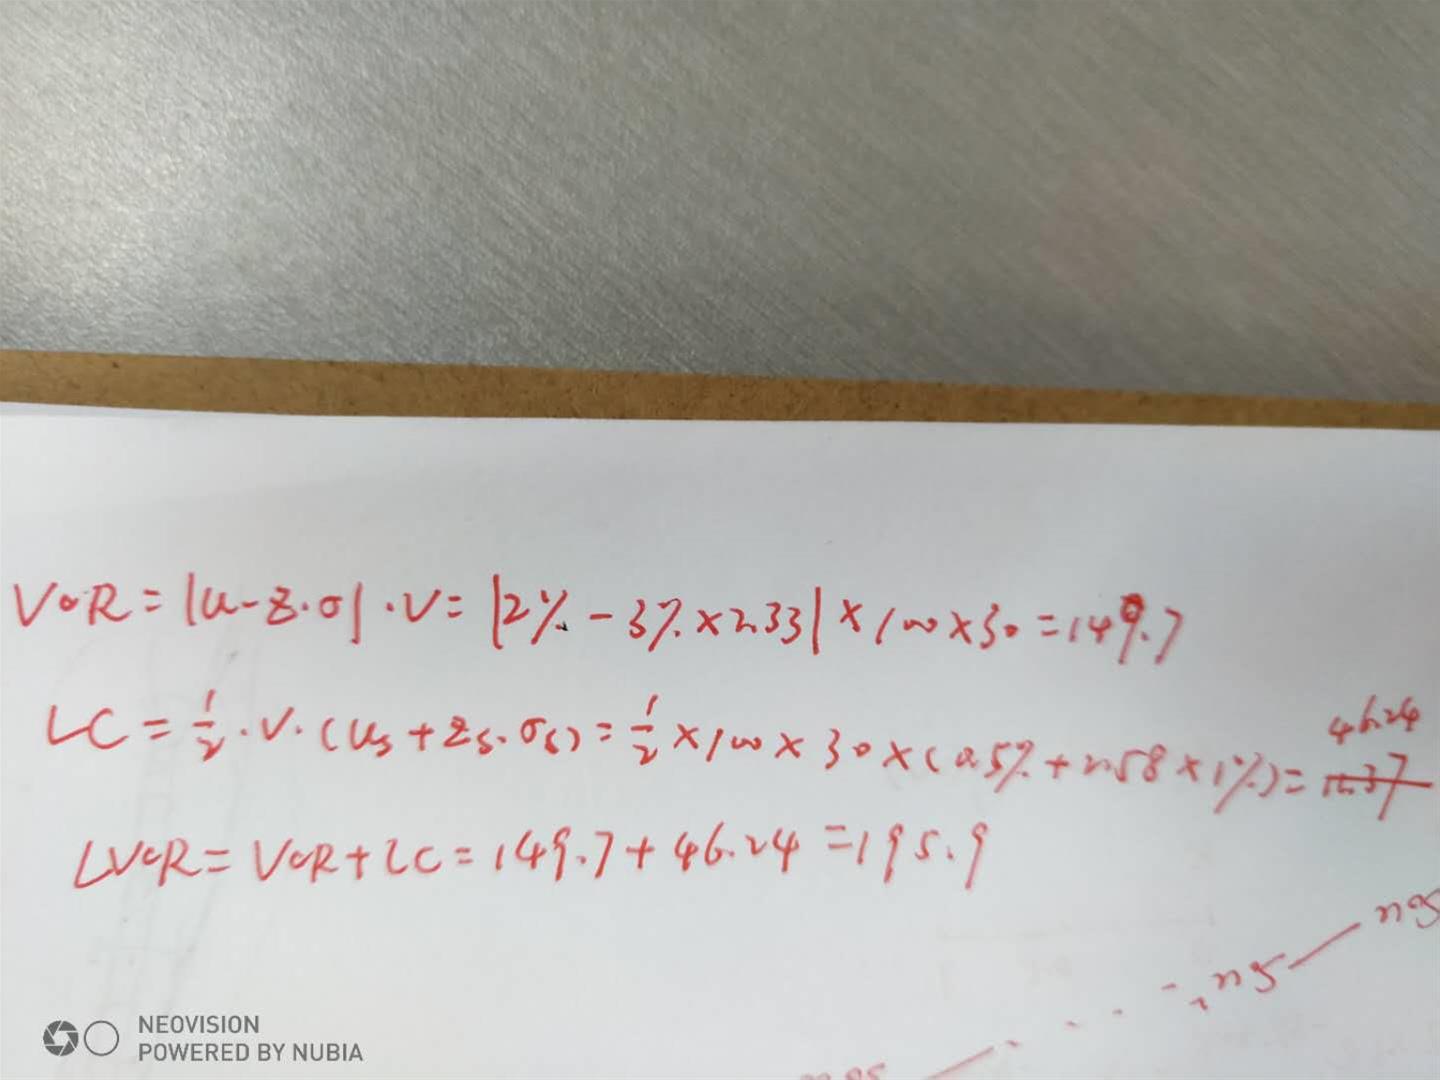 VaR = |u - z·σ| · V = |2% - 3% × 2.33| × 100 × 30 = 149.7
46.24
LC = 1/2 · V · (us + zs · σs) = 1/2 × 100 × 30 × (0.5% + 2.58 × 1%) =
LVaR = VaR + LC = 149.7 + 46.24 = 195.9
NEOVISION
POWERED BY NUBIA